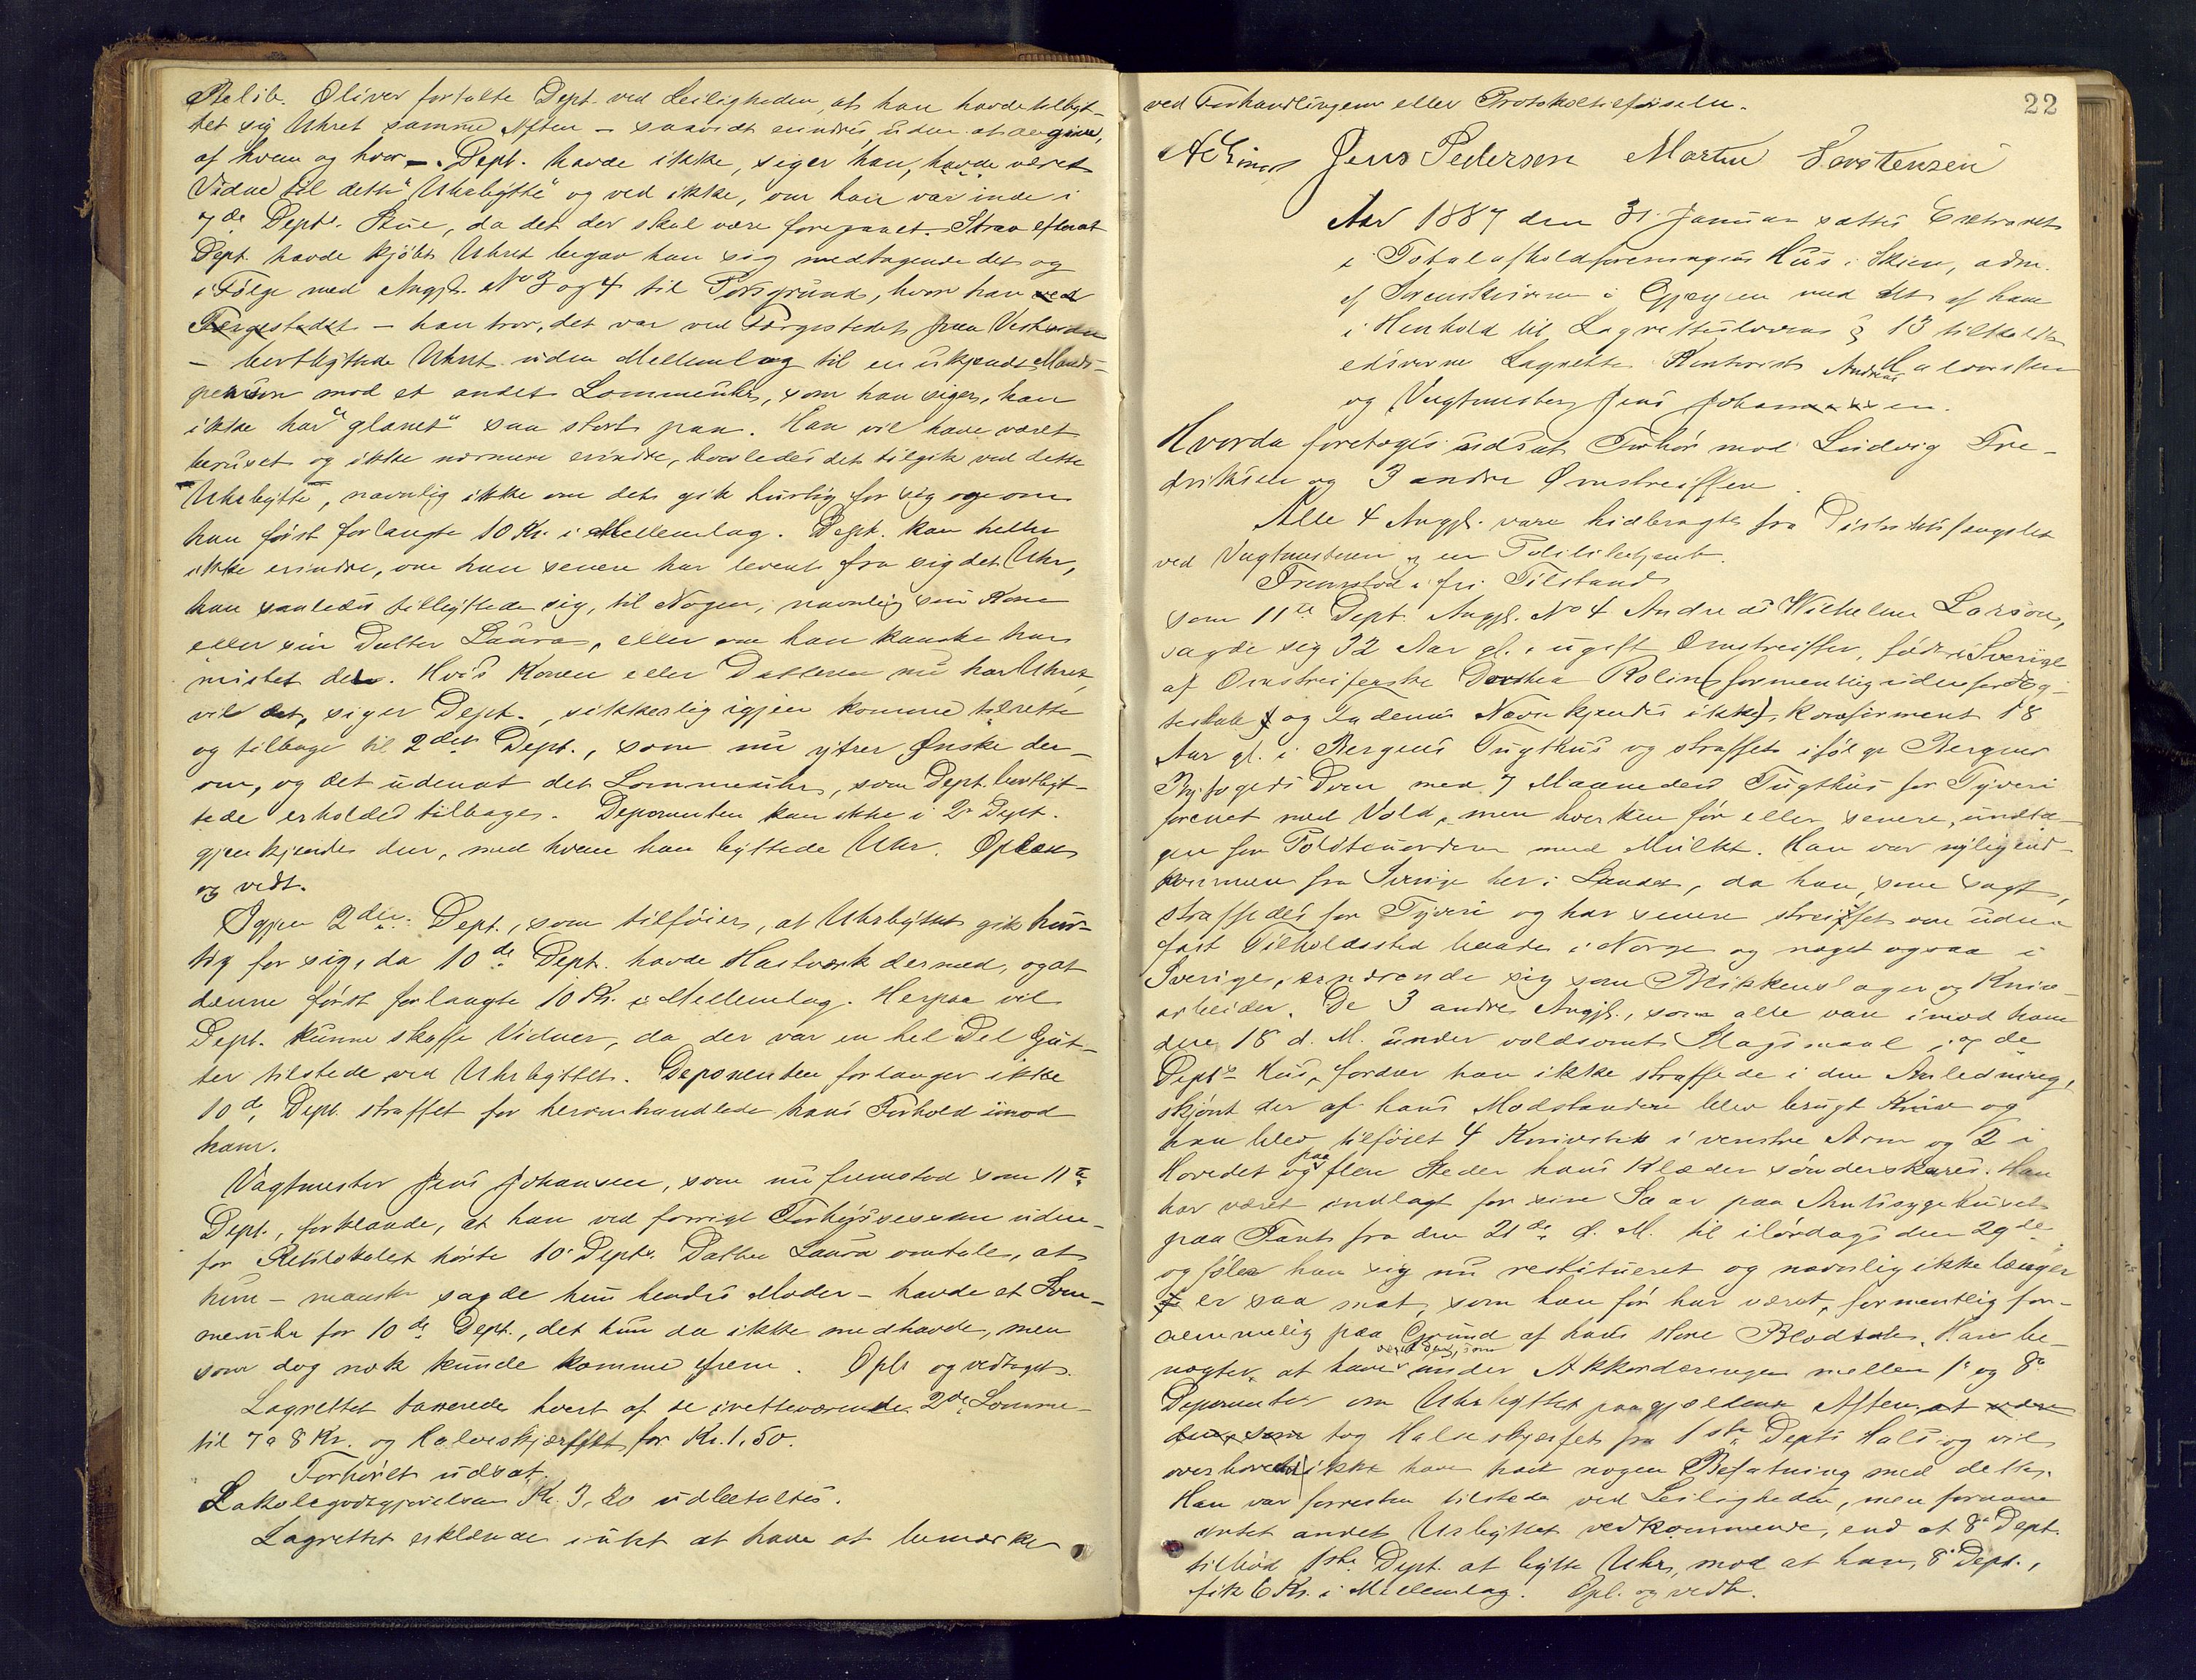 Belib. Oliver fortalte Dept. ved Leiligheden, at han havde tilbyt-
tet sig Uhret samme Aften – saavidt erindres uden at angive,
af hvem og hvor –. Dept. havde ikke, siger han, havde været
Vidne til dette "Uhrbytte" og ved ikke, om han var inde i
7de Depts. Stue, da det der skal være foregaaet. Strax efterat
Dept. havde kjöbt Uhret begav han sig medtagende det og
i Fölge med Angjl. No 3 og 4 til Porsgrund, hvor han ved
Færgestedet – han tror, det var ved Færgestedet paa Vestsiden
– bortbyttede Uhret uden Mellemlag til en ukjendt Mands-
person mod et andet Lommeuhr, som han siger, han
ikke har "glanet" saa stort paa. Han vil have været
beruset og ikke nærmere erindre, hvorledes det tilgik ved dette
"Uhrbytte", navnlig ikke om det gik hurtig for sig og om
han først forlangte 10 Kr. i Mellemlag. Dept. kan heller
ikke erindre, om han senere har leveret fra sig det Uhr,
han saaledes tilbyttede sig, til Nogen, navnlig sin Kone
eller sin Datter Laura, eller om han kanske har
mistet det. Hvis Konen eller Datteren nu har Uhret,
vil det, siger Dept., sikkerlig igjen komme tilrette
og tilbage til 2den Dept., som nu ytrer Ønske der-
om, og det udenat det Lommeuhr, som Dept. bortbyt-
tede erholdes tilbage. Deponenten kan ikke i 2. Dept.
gjenkjende den, med hvem han byttede Uhr. Oplæst
og vedt.
Igjen 2den Dept., som tilføier, at Uhrbyttet gik hur-
tig for sig, da 10de Dept. havde Hastværk dermed, og at
denne først forlangte 10 Kr. i Mellemlag. Herpaa vil
Dept. kunne skaffe Vidner, da der var en hel Del Gut-
ter tilstede ved Uhrbyttet. Deponenten forlanger ikke
10de Dept. straffet for heromhandlede hans Forhold imod
ham.
Vagtmester Jens Johansen, som nu fremstod som 11te
Dept., forklarede, at han ved forrige Forhørssession uden-
for Retslokalet hørte 10. Depts. Datter Laura omtale, at
hun – maaske sagde hun hendes Moder – havde et Lom-
meuhr for 10de Dept., det hun da ikke medhavde, men
som dog nok kunde komme frem. Opl. og vedtaget.
Lagrettet taxerede hvert af de iretteværende 2de Lomme-
til 7 a 8 Kr. og Halsskjærffet for Kr. 1,50.
Forhøret udsat.
Lokalegodtgjørelsen Kr. 3,20 udbetaltes.
Lagrettet erklærede intet at have at bemærke
22
ved Forhandlingen eller Protokoltilførselen.
Jens Pedersen Martin Torstensen
Aar 1887 den 31. Januar sattes Extraret
i Totalafholdsforeningens Hus i Skien, adm.
af Sorenskriveren i Gjerpen med det af ham
i Henhold til Lagrettelovens § 13 tilkaldte
edsvorne Lagrette Kontorist Andreas Halvorsen
og Vagtmester Jens Johannesen.
Hvorda foretoges udsat Forhør mod Ludvig Fre-
driksen og 3 andre Omstreiffere.
Alle 4 Angjl. vare hidbragte fra Distriktsfængslet
ved Vagtmesteren og en Politibetjent.
Fremstod i fri Tilstand
som 11te Dept. Angjl. No 4 Andreas Wilhelm Larsen,
sagde sig 32 Aar gl., ugift Omstreiffer, født i Sverige
af Omstreiferske Dorthea Rolin (formentlig udenfor Æg-
teskab og Faderens Navn kjendes ikke), konfirmeret 18
Aar gl. i Bergens Tugthus og straffet ifølge Bergens
Byfogeds Dom med 7 Maaneders Tugthus for Tyveri
forenet med Vold, men hverken før eller senere, undta-
gen for Politiuorden med Mulkt. Han var nylig ind-
kommen fra Sverige her i Landet, da han, som sagt,
straffedes for Tyveri og har senere streiffet om uden
fast Tilholdssted baade i Norge og noget ogsaa i
Sverige, ernærende sig som Blikkenslager og Kniv-
arbeider. De 3 andre Angjl., som alle vare imod ham
den 18 d. M. under voldsomt Slagsmaal i 7de
Depts Hus, fordrer han ikke straffede i den Anledning,
skjønt der af hans Modstandere blev brugt Kniv og
han blev tilføiet 4 Knivstik i venstre Arm og 2 i
Hovedet og paa flere Steder hans Klæder sønderskares. Han
har været indlagt for sine Saar paa Amtssygehuset
paa Fant fra den 21de d. M. til ilørdags den 29de
og føler han sig nu restitueret og navnlig ikke længer
er saa mat, som han før har været, formentlig for-
nemmelig paa Grund af hans store Blodtab. Han be-
nægter at have været den, som under Akkorderingen mellem 1. og 8.
Deponenter om Uhrbyttet paagjeldende Aften at være
den, som tog Halsskjærfet fra 1ste Depts Hals og vil
overhovedet ikke have havt nogen Befatning med dette.
Han var forresten tilstede ved Leiligheden, men fornam
intet andet Urbyttet vedkommende, end at 8de Dept.
tilbød 1ste Dept. at bytte Uhr, mod at han, 8. Dept.,
fik 6 Kr. i Mellemlag. Opl. og vedt.